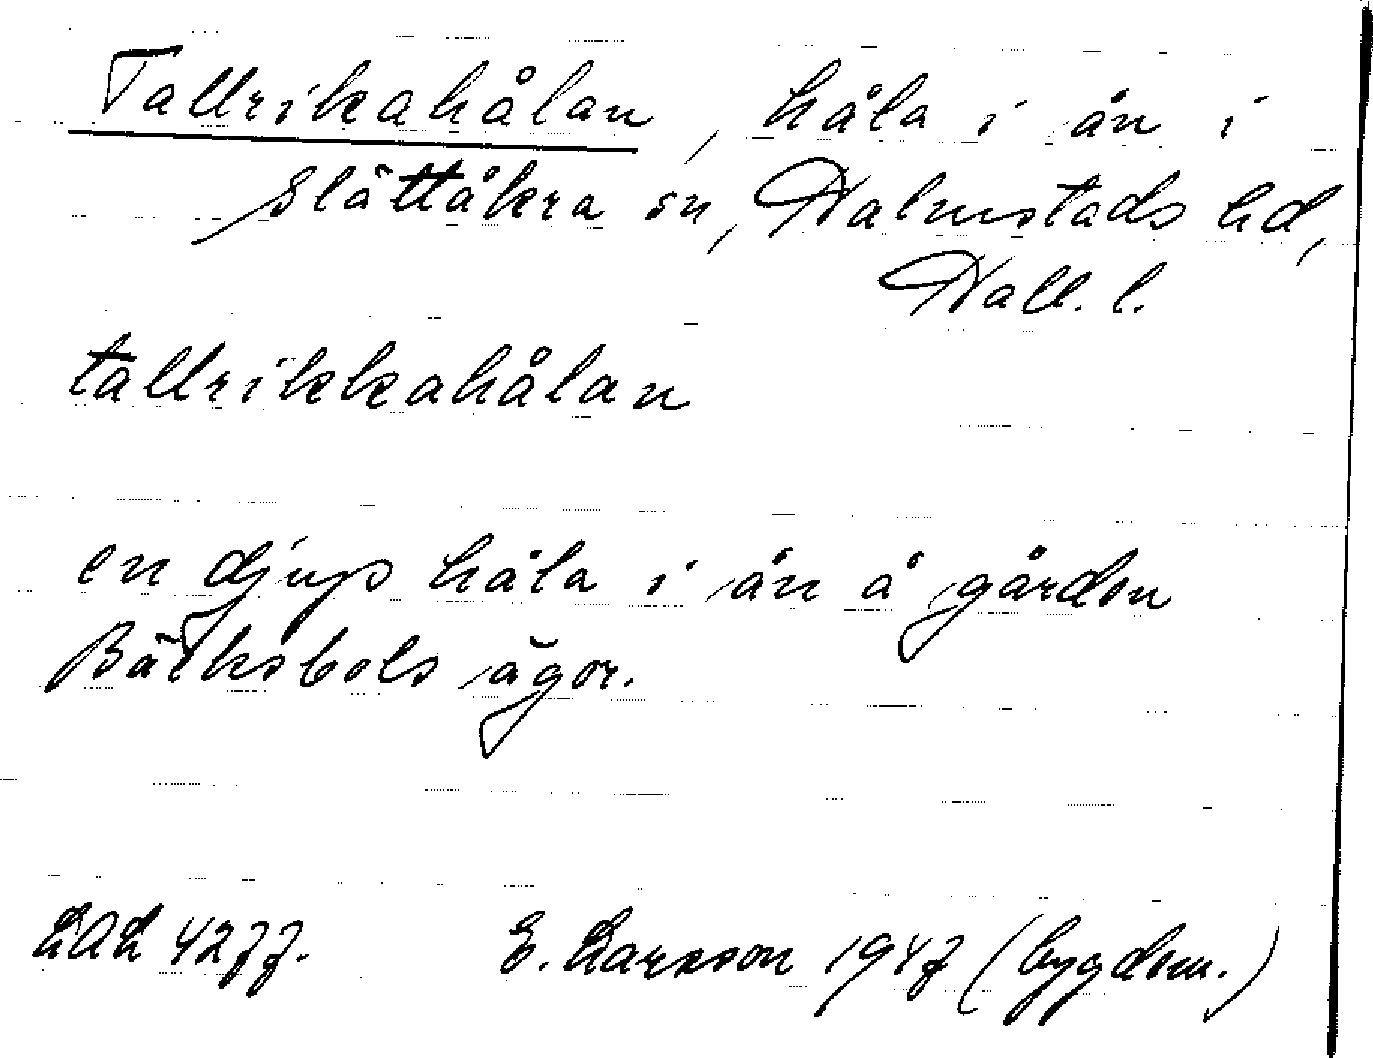 Tallrikahålan, håla i ån i
Slättåkra sn, Halmstads hd,
Hall. l.
tallrikkahålan
en djup håla i ån å gården
Bäcksbols ägor.
LAL 4277. E. Larsson 1947 (bygdem.)